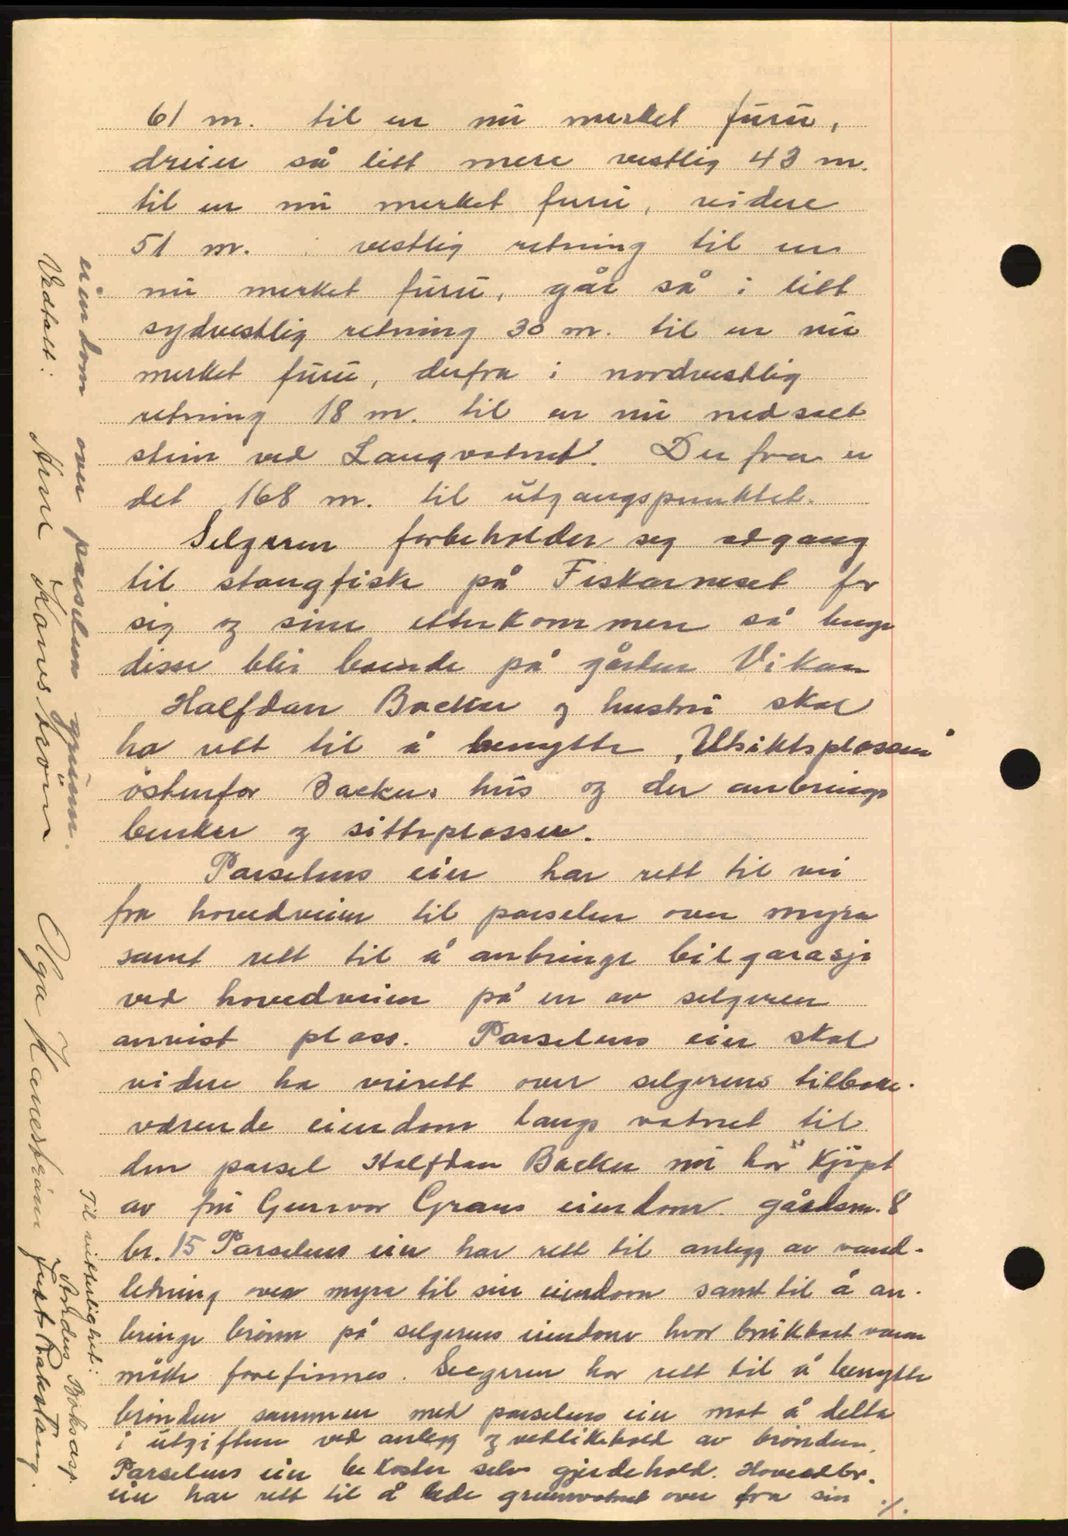 61 m. til en nu merket furu,
dreier så litt mere vestlig 43 m.
til en nu merket furu, videre
51 m. i vestlig retning til en
nu merket furu, går så i litt
sydvestlig retning 30 m. til en nu
merket furu, derfra i nordvestlig
retning 18 m. til en nu nedsatt
sten ved Langvatnet. Derfra er
det 168 m. til utgangspunktet.
Selgeren forbeholder seg adgang
til stangfisk på Fiskarneset for
sig og sine etterkommere så lenge
disse blir boende på gården Vikan
Halfdan Backer og hustru skal
ha rett til å benytte "Utsiktsplassen"
østenfor Backers hus og der anbringe
benker og sitteplasser.
Parselens eier har rett til vei
fra hovedveien til parselen over myra
samt rett til å anbringe bilgarasje
ved hovedveien på en av selgeren
anvist plass. Parselens eier skal
videre ha veirett over selgerens tilbake-
værende eiendom langs vatnet til
den parsel Halfdan Backer nu har kjøpt
av fru Gunvor Grans eiendom gårdsnr. 8
br. 15 Parselens eier har rett til anlegg av vand-
ledning over myra til sin eiendom samt til å an-
bringe brønn på selgerens eiendom hvor brukbart vann
måtte forefinnes. Selgeren har rett til å benytte
brønden sammen med parselens eier mot å delta
i utgiften ved anlegg og vedlikehold av brønden.
Parselens eier bekoster selv gjerdehold. Hovedbr.
eier har rett til å lede grunnvatnet over fra sin ./.
eiendom over parselens grunn.
Vedtatt:
Arne
Olga
Til vitterlighet: